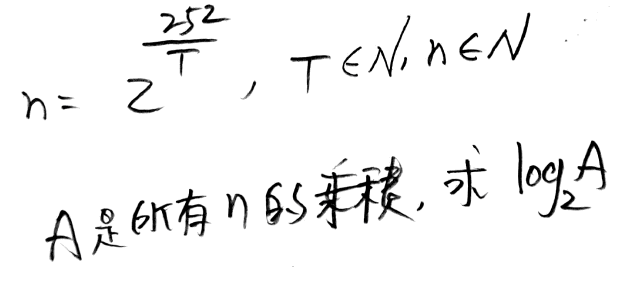 n = 2^{\frac{252}{T}}, T∈N, n∈N
A是所有n的乘积, 求 log₂A